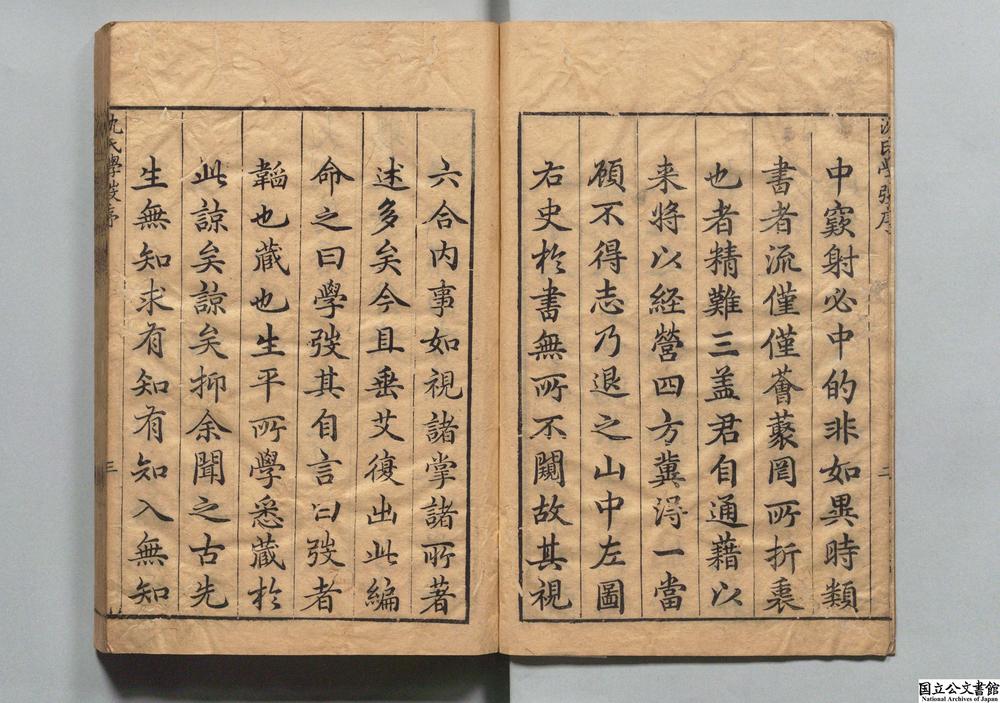 中窾射必中的非如異時類
書者流僅僅薈蕞罔所折衷
也者精難三盖君自通藉以
来将以経營四方冀得一當
顧不得志乃退之山中左圖
右史於書無所不闚故其視
六合内事如視諸掌諸所著
述多矣今且垂艾復出此編
命之曰學弢其自言曰弢者
韜也藏也生平所學悉藏於
此諒矣諒矣抑余聞之古先
生無知求有知有知入無知
沈氏學弢序
二
沈氏學弢序
三
国立公文書館
National Archives of Japan